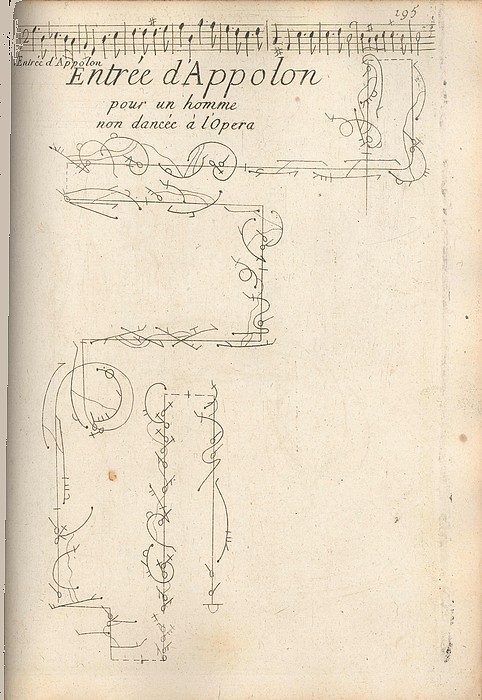 195
2
Entrée d'Appolon
Entrée d'Appolon
pour un homme
non dancée à l'Opera